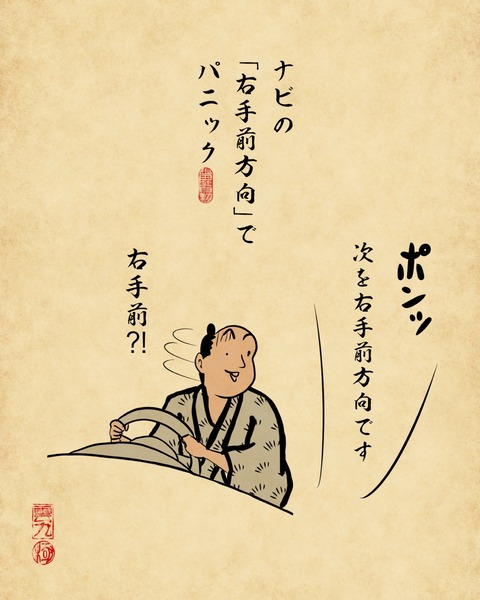 ナビの
「右手前方向」で
パニック
ポンッ
次を右手前方向です
右手前?!